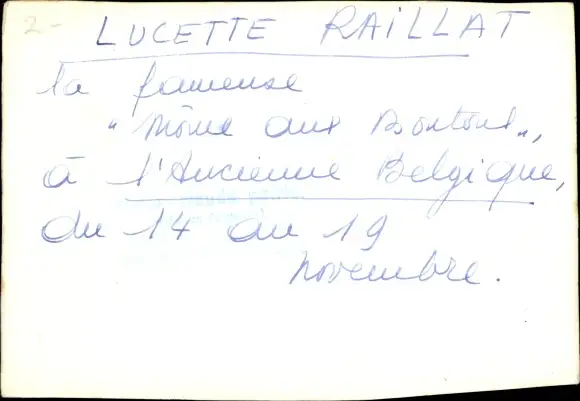 2-
LUCETTE RAILLAT
la fameuse
"Môme aux Boutons",
à l'Ancienne Belgique,
du 14 au 19
novembre.